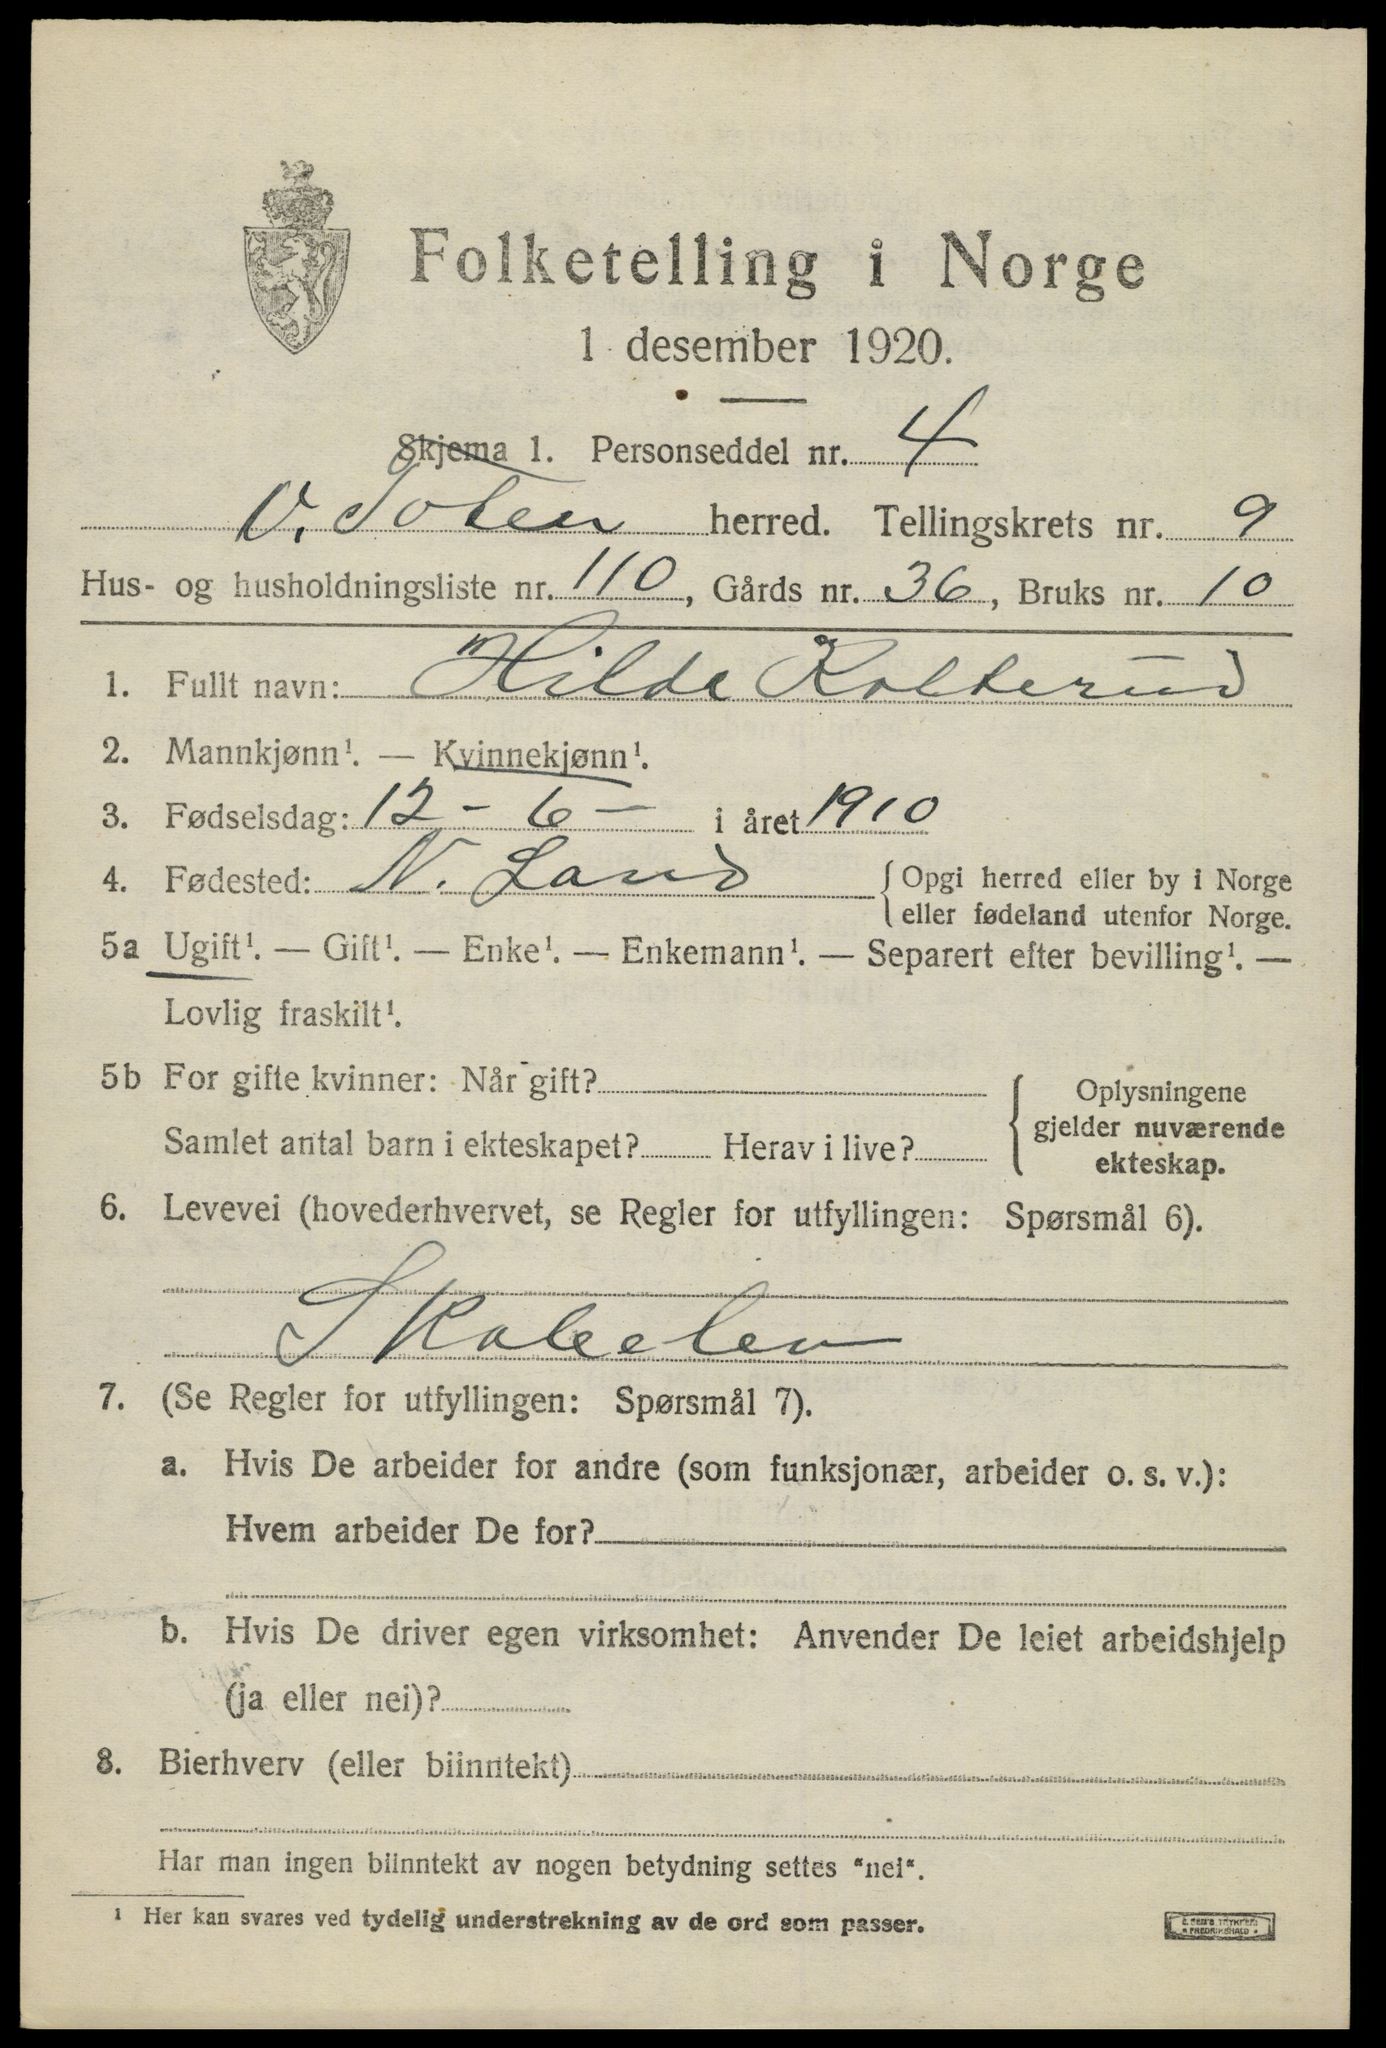 Folketelling i Norge
1 desember 1920.
Skjema 1. Personseddel nr. 4
V. Toten herred. Tellingskrets nr. 9
Hus- og husholdningsliste nr. 110, Gårds nr. 36, Bruks nr. 10
1. Fullt navn: Hilda Kolterud
2. Mannkjønn¹. — Kvinnekjønn¹.
3. Fødselsdag: 12 - 6 - i året 1910
4. Fødested: N. Land {Opgi herred eller by i Norge
eller fødeland utenfor Norge.
5a Ugift¹. — Gift¹. — Enke¹. — Enkemann¹. — Separert efter bevilling¹. —
Lovlig fraskilt¹.
5b For gifte kvinner: Når gift?
Samlet antal barn i ekteskapet? Herav i live?
{Oplysningene
gjelder nuværende
ekteskap.
6. Levevei (hovederhvervet, se Regler for utfyllingen: Spørsmål 6).
Skoleelev
7. (Se Regler for utfyllingen: Spørsmål 7).
a. Hvis De arbeider for andre (som funksjonær, arbeider o. s. v.):
Hvem arbeider De for?
b. Hvis De driver egen virksomhet: Anvender De leiet arbeidshjelp
(ja eller nei)?
8. Bierhverv (eller biinntekt)
Har man ingen biinntekt av nogen betydning settes "nei".
¹ Her kan svares ved tydelig understrekning av de ord som passer.
FREDRIKSHALD